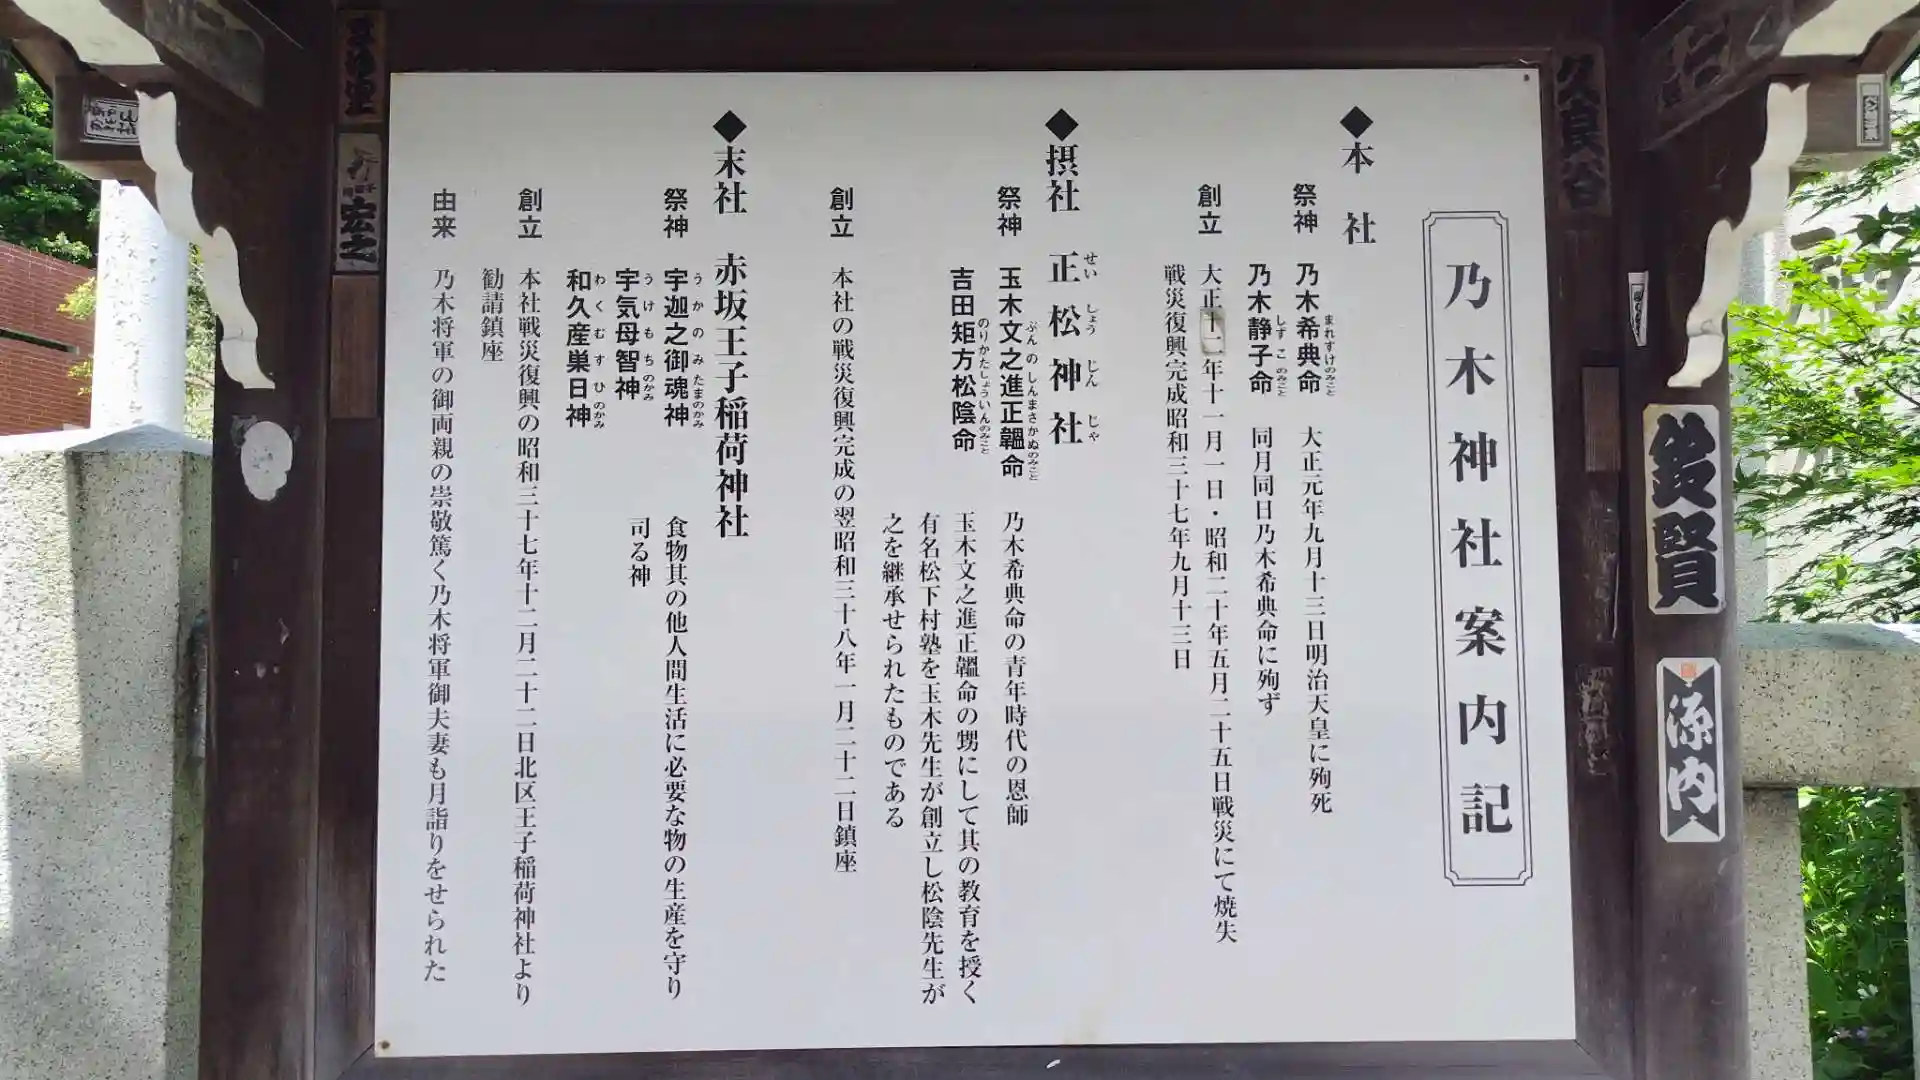 乃木神社案内記
◆本社
祭神 乃木希典命 大正元年九月十三日明治天皇に殉死
まれすけのみこと
乃木静子命 同月同日乃木希典命に殉ず
しずこのみこと
創立 大正十二年十一月一日・昭和二十年五月二十五日戦災にて焼失
戦災復興完成昭和三十七年九月十三日
◆摂社 正松神社
せいしょうじんじゃ
祭神 玉木文之進正韞命 乃木希典命の青年時代の恩師
ぶんのしんまさかぬのみこと
吉田矩方松陰命 玉木文之進正韞命の甥にして其の教育を授く
のりかたしょういんのみこと
有名松下村塾を玉木先生が創立し松陰先生が
之を継承せられたものである
創立 本社の戦災復興完成の翌昭和三十八年一月二十二日鎮座
◆末社 赤坂王子稲荷神社
祭神 宇迦之御魂神 食物其の他人間生活に必要な物の生産を守り
うかのみたまのかみ
宇気母智神 司る神
うけもちのかみ
和久産巣日神
わくむすひのかみ
創立 本社戦災復興の昭和三十七年十二月二十二日北区王子稲荷神社より
勧請鎮座
由来 乃木将軍の御両親の崇敬篤く乃木将軍御夫妻も月詣りをせられた
久良谷
鈴賢
源内
宏之